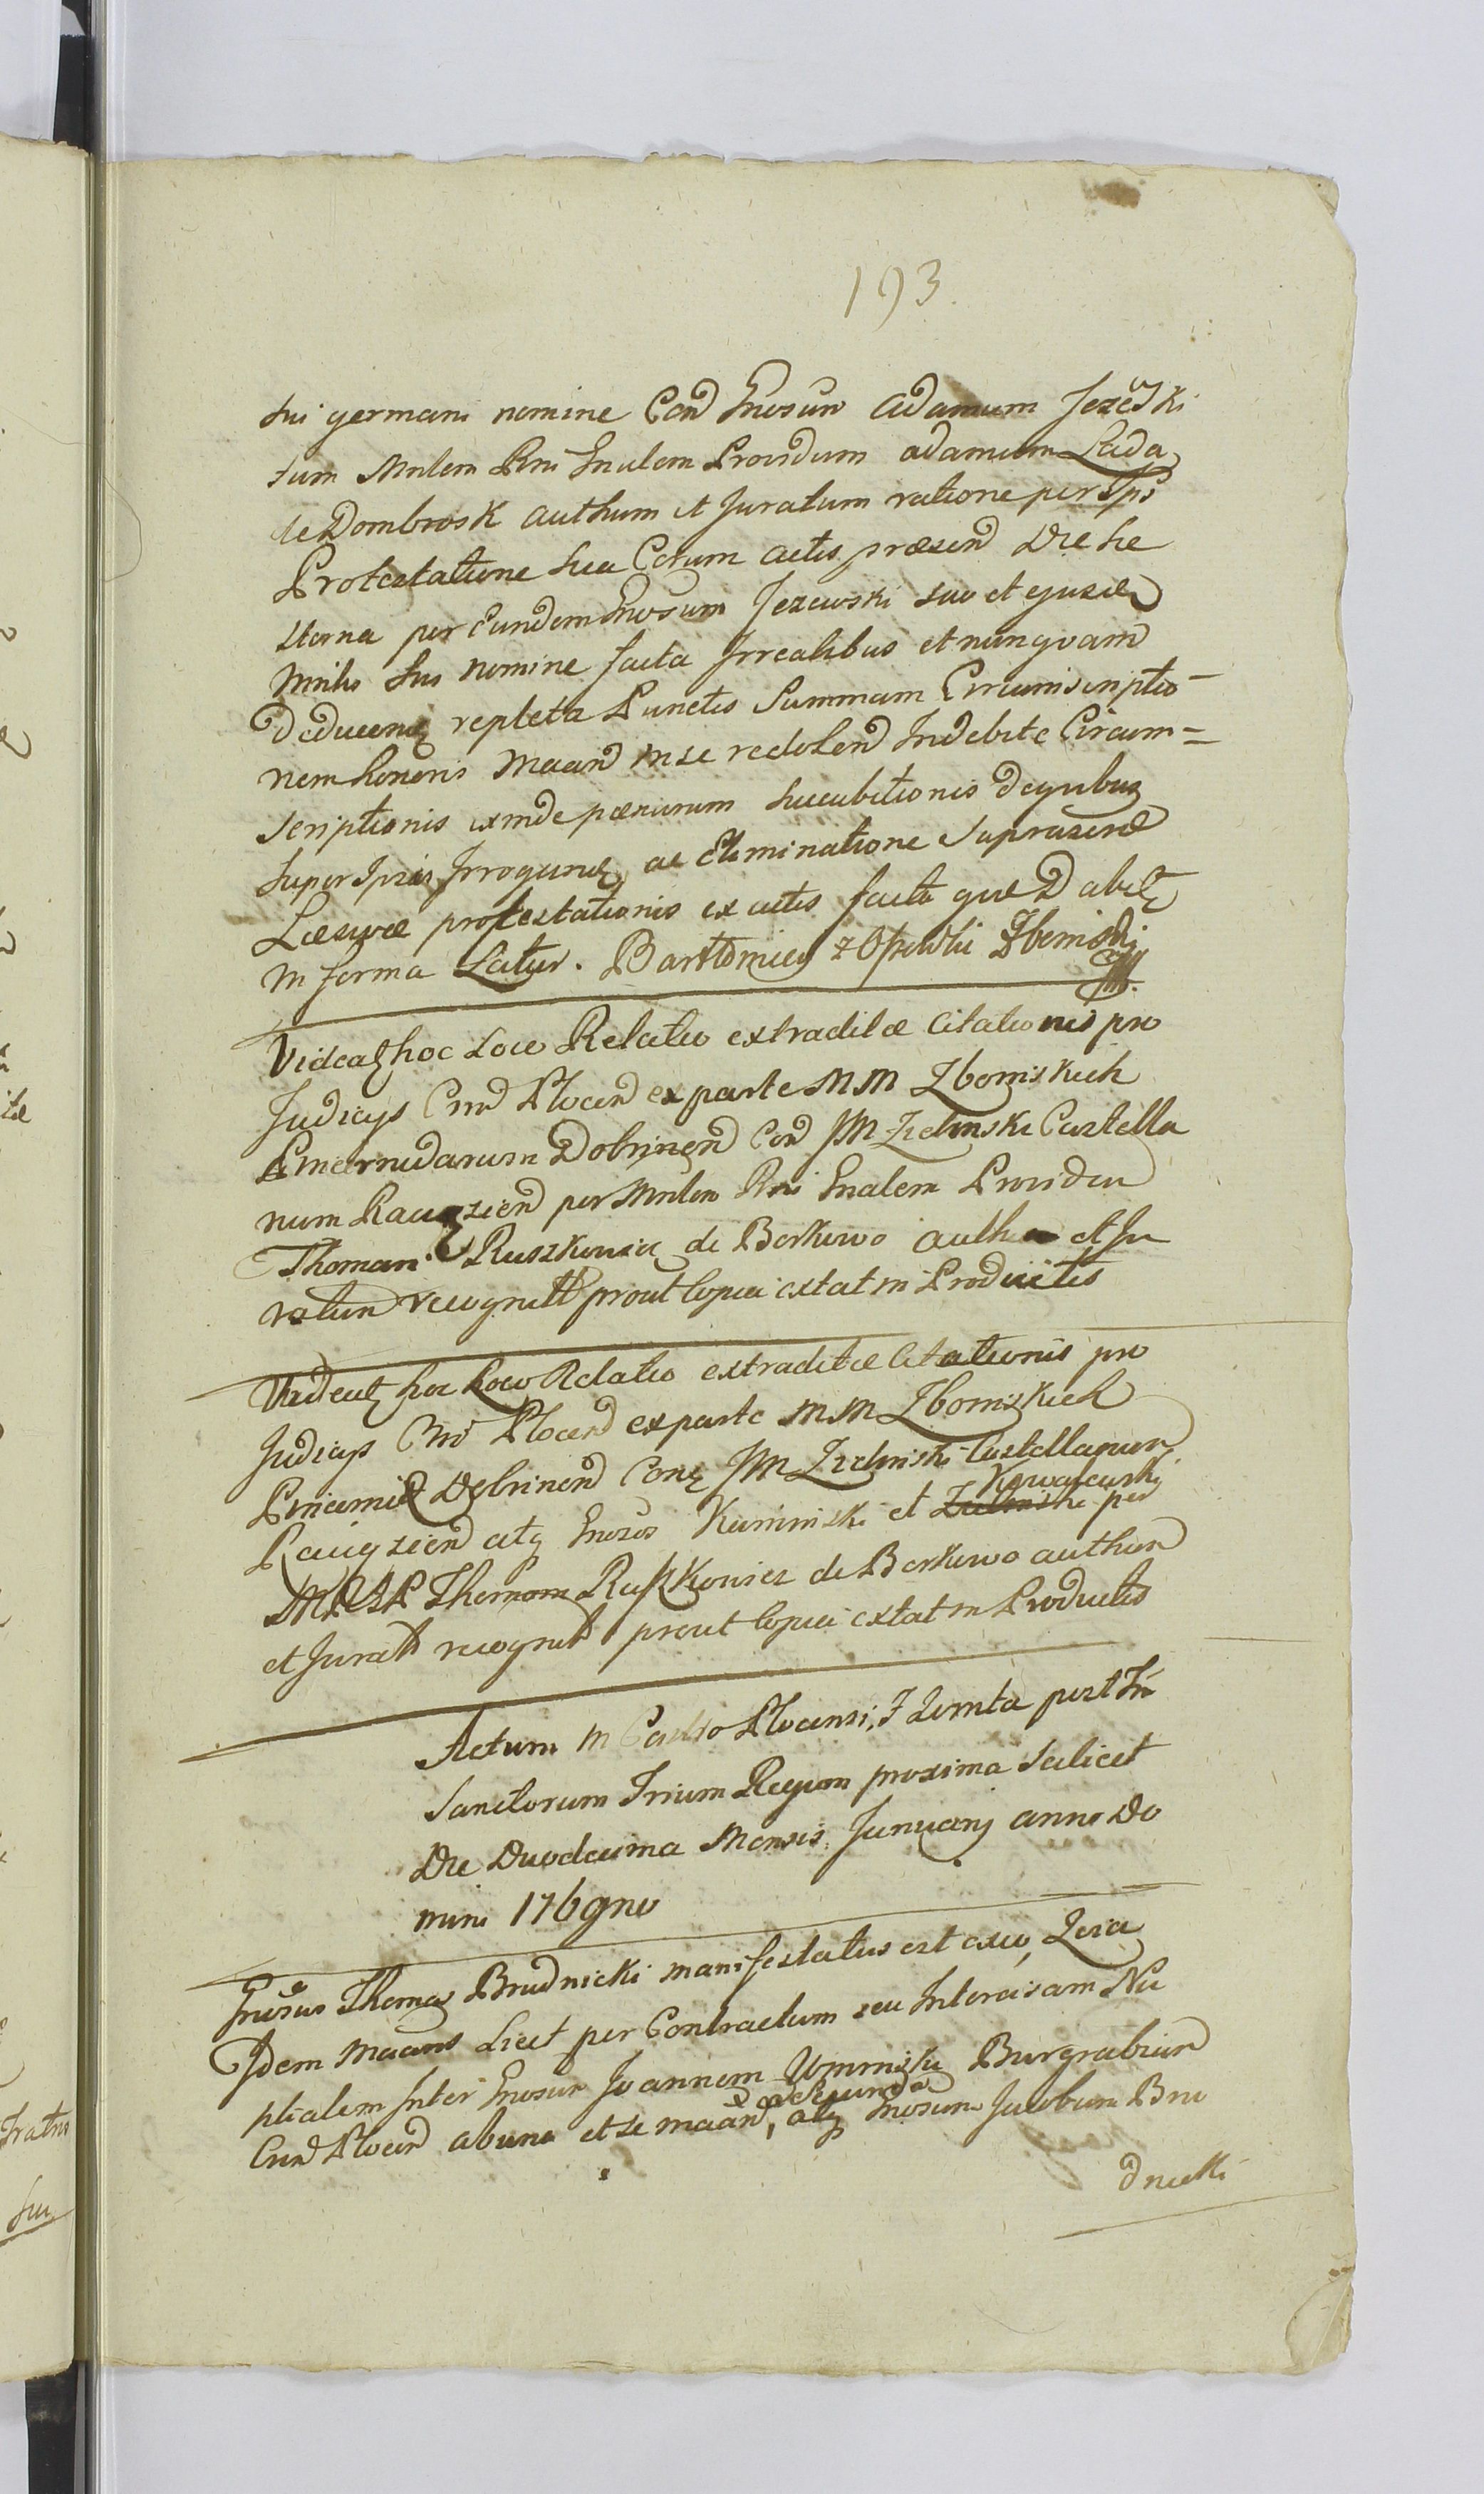 193.
sui germani nomine Con Gnosum Adamum Jezewski
tum Mnlem Rni Gnalem Providum adamum Lada
de Dombrosk authum et Juratum ratione per Ips
Protestatione sua Coram actis præsen Die he
sterna per eundem Gnosum Jezewski suo et ejusd
Mnlis sui nomine facta Irrealibus et nunqvam
Deducenq repleta Punctis Summam Circumscriptio-
nem honoris Maan in se redolen Indebite Circum=
scriptionis exinde pœnarum succubitionis de qvibus
super Ipsis Irroganq ac Eliminatione suprascrip
Læsivæ protestationis ex actis facta quæ Dabit
in forma Latur. Bartłomiey z Osowki Zboinski
Videatq hoc Loco Relatio extraditæ Citationis pro
Judicys Cnn Plocen ex parte MM Zboinskich
Pincernidarum Dobrinen Con JM Zielinski Castella
num Raciązien per Mnlem Rni Gnalem Providu
Thomam Ruszkowicz de Borkowo auth et Ju
ratum recognitt prout Copia extat in Productis
Videatq hoc Loco Relatio extraditæ Citationis pro
Judicys Cnn Plocen ex parte MM Zboinskich
Pincernid Dobrinen Conq JM Zielinski Castellanum
Kowalewski
Raciązien atq Gnosos Kuminski et Zielinski per
MRGP Thomam Ruszkowicz de Borkowo authum
et Jurat recognitt prout Copia extat in Productis
Actum in Castro Plocensi, F quinta post Fm
Sanctorum Trium Regum proxima scilicet
Die Duodecima Mensis Januarij anno Do
mini 1769no
Gnosus Thomas Brudnicki manifestatus est exeo, Qvia
Idem Maans Licet per Contractum seu Intercisam Nu
ptialem Inter Gnosum Joannem Uminski Burgrabium
et secunda
Cnn Plocen ab una et se maan, atq Gnosum Jacobum Bru
dnicki